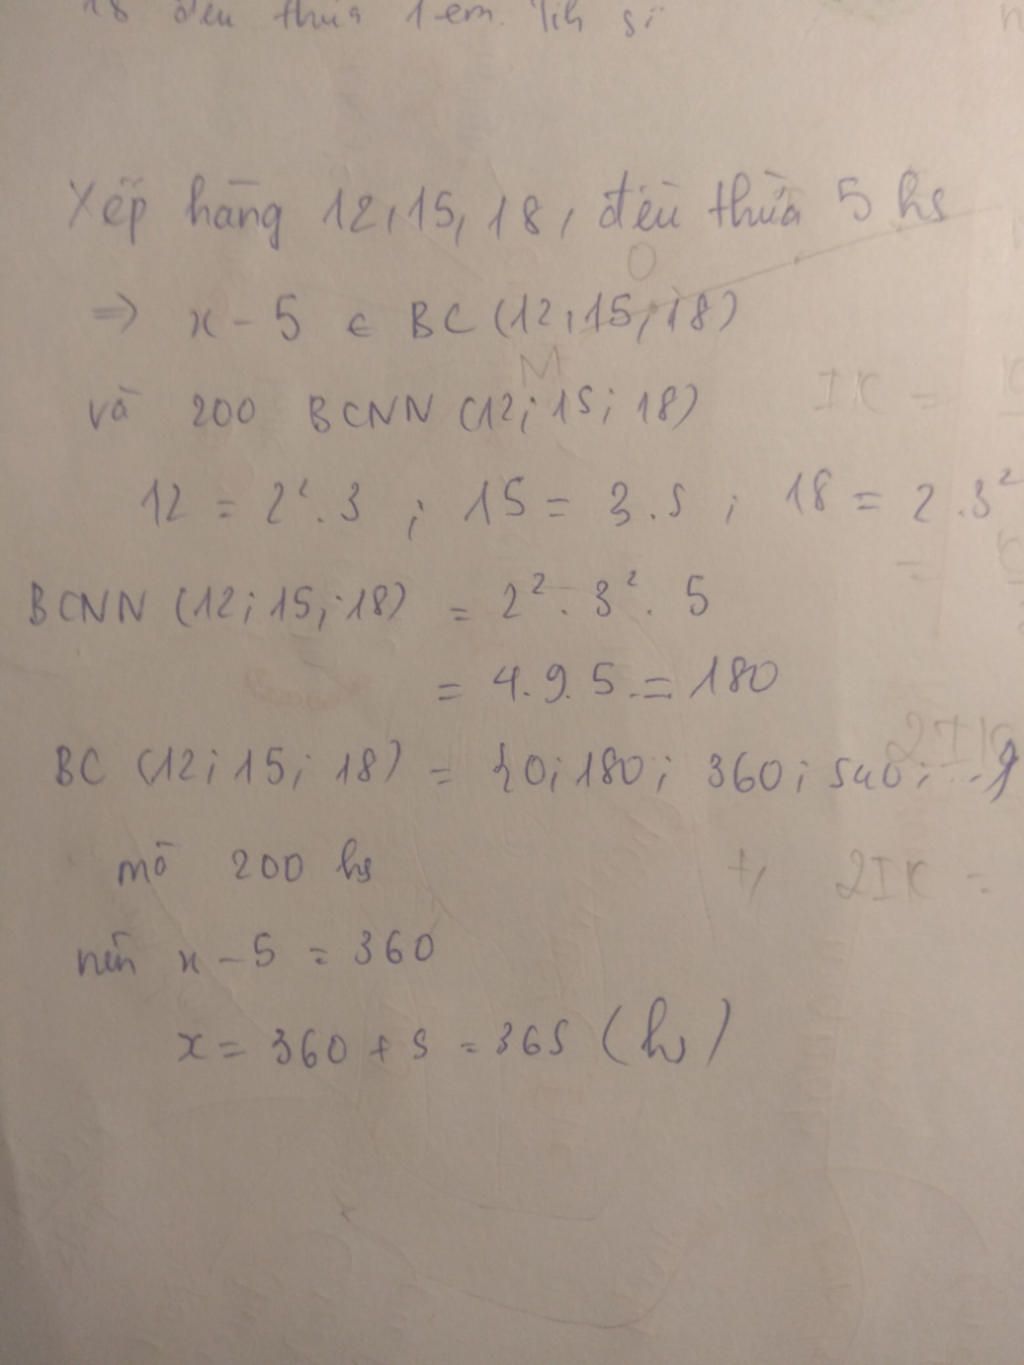 18 đều thừa 1 em. Tính số
Xếp hàng 12, 15, 18, đều thừa 5 hs
O
⇒ x - 5 ∈ BC (12; 15; 18)
M
và 200 BCNN (12; 15; 18)
IK =
12 = 2². 3 ; 15 = 3. 5 ; 18 = 2 . 3²
=
BCNN (12; 15; 18) = 2². 3². 5
= 4. 9. 5. = 180
2IK
BC (12; 15; 18) = {0; 180; 360; 540; ...}
mà 200 hs
+, 2IK =
nên x - 5 = 360
x = 360 + 5 = 365 (hs)